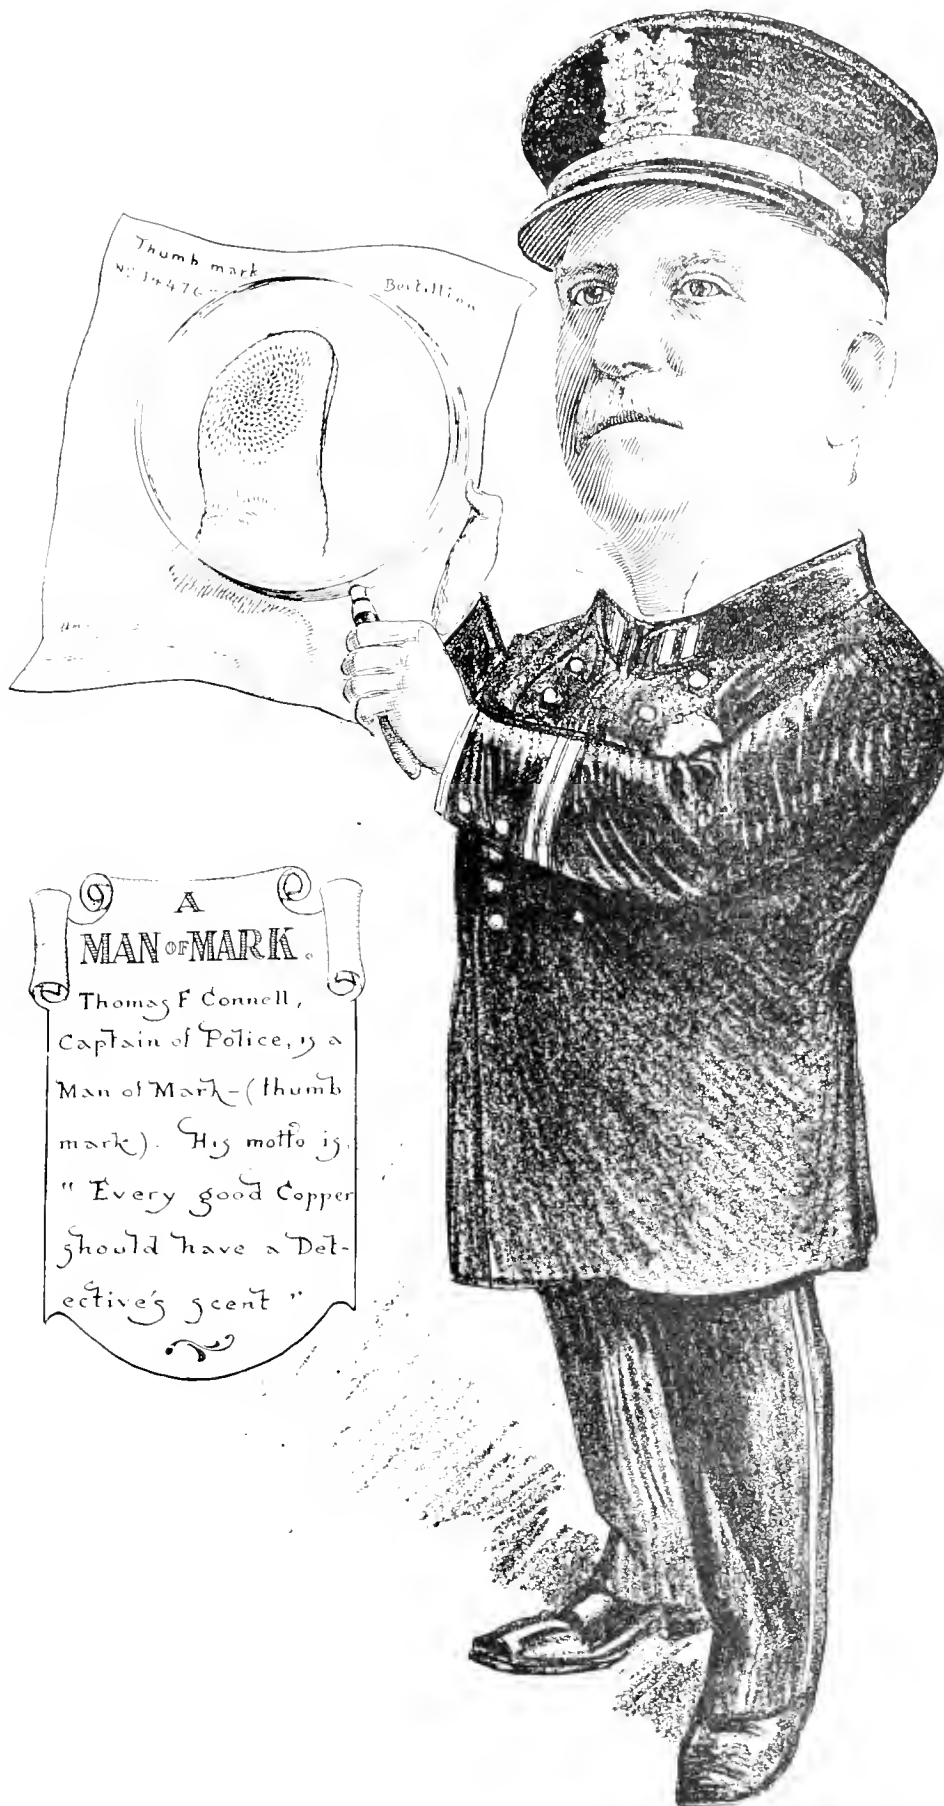 Thumb mark
Bertillion
A
MAN OF MARK.
Thomas F Connell,
Captain of Police, is a
Man of Mark-(thumb
mark). His motto is,
"Every good Copper
should have a Det-
ective's scent"